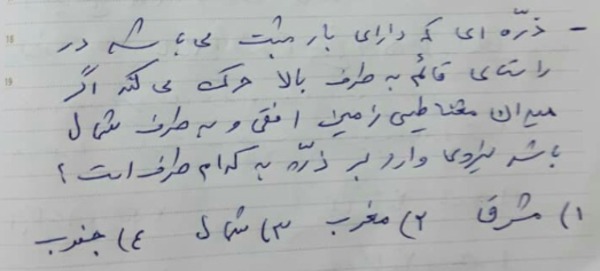 - ذرّه ای که دارای بار مثبت می باشد در
راستای قائم به طرف بالا حرکت می کند اگر
میدان مغناطیسی زمین افقی و به طرف شمال
باشد نیروی وارد بر ذرّه به کدام طرف است؟
۱) مشرق ۲) مغرب ۳) شمال ۴) جنوب